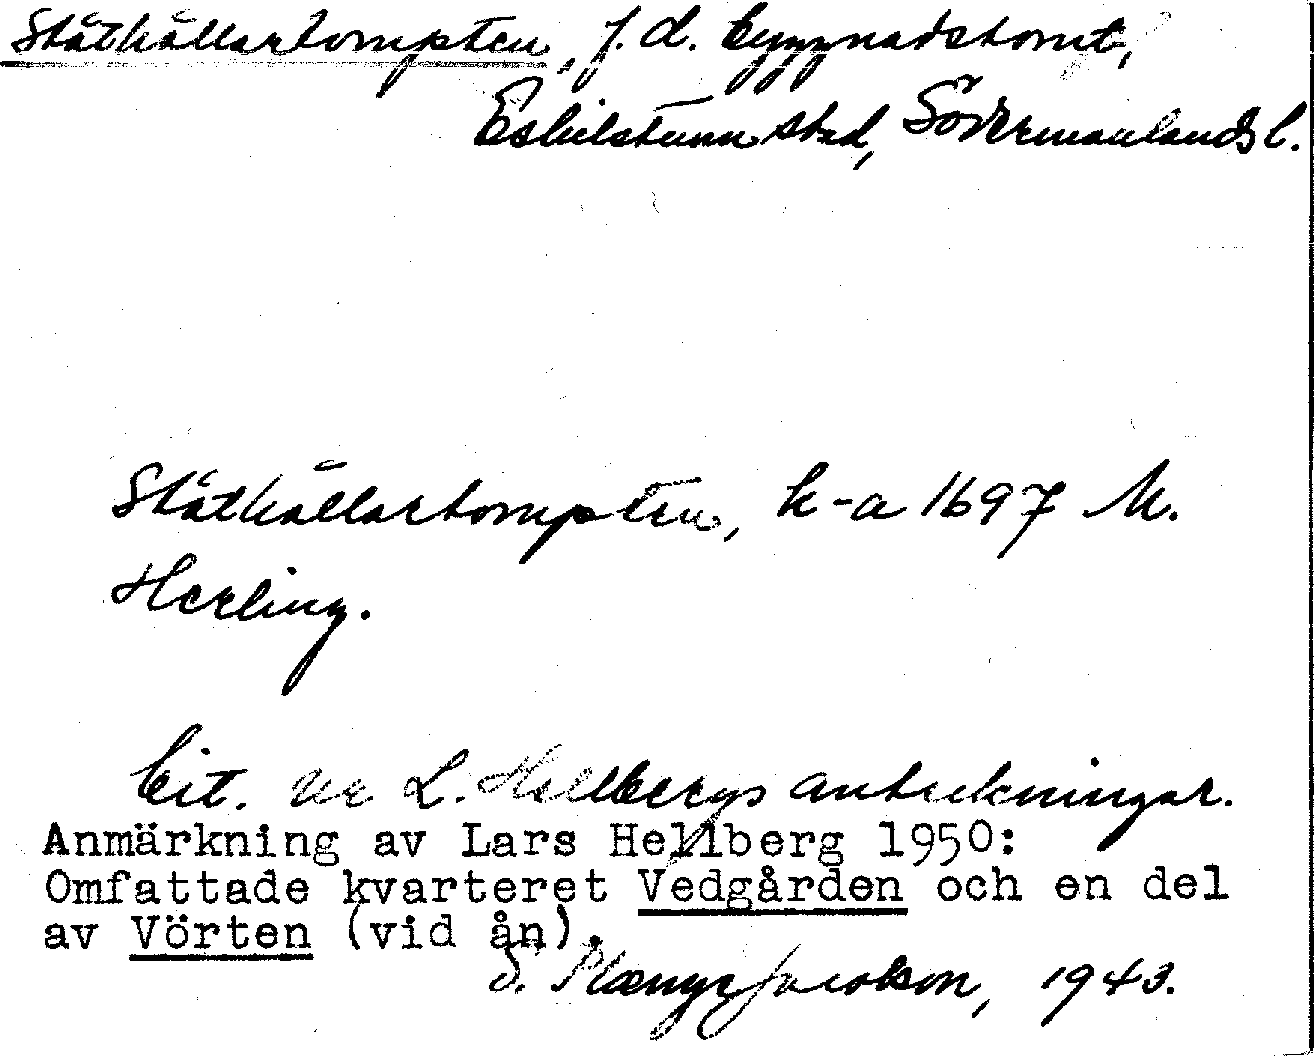 Ståthållartompten, f.d. byggnadstomt,
Eskilstuna stad, Södermanlands l.
Ståthållartompten, k-a 1697 M.
Herling.
Cit. ur L. Hellbergs anteckningar.
Anmärkning av Lars Hellberg 1950:
Omfattade kvarteret Vedgården och en del
av Vörten (vid ån).
S. Jacobson, 1943.